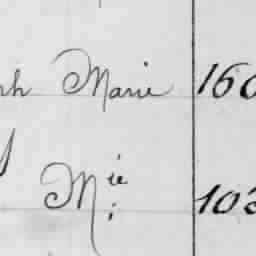 ph Marie 160
Mie 103